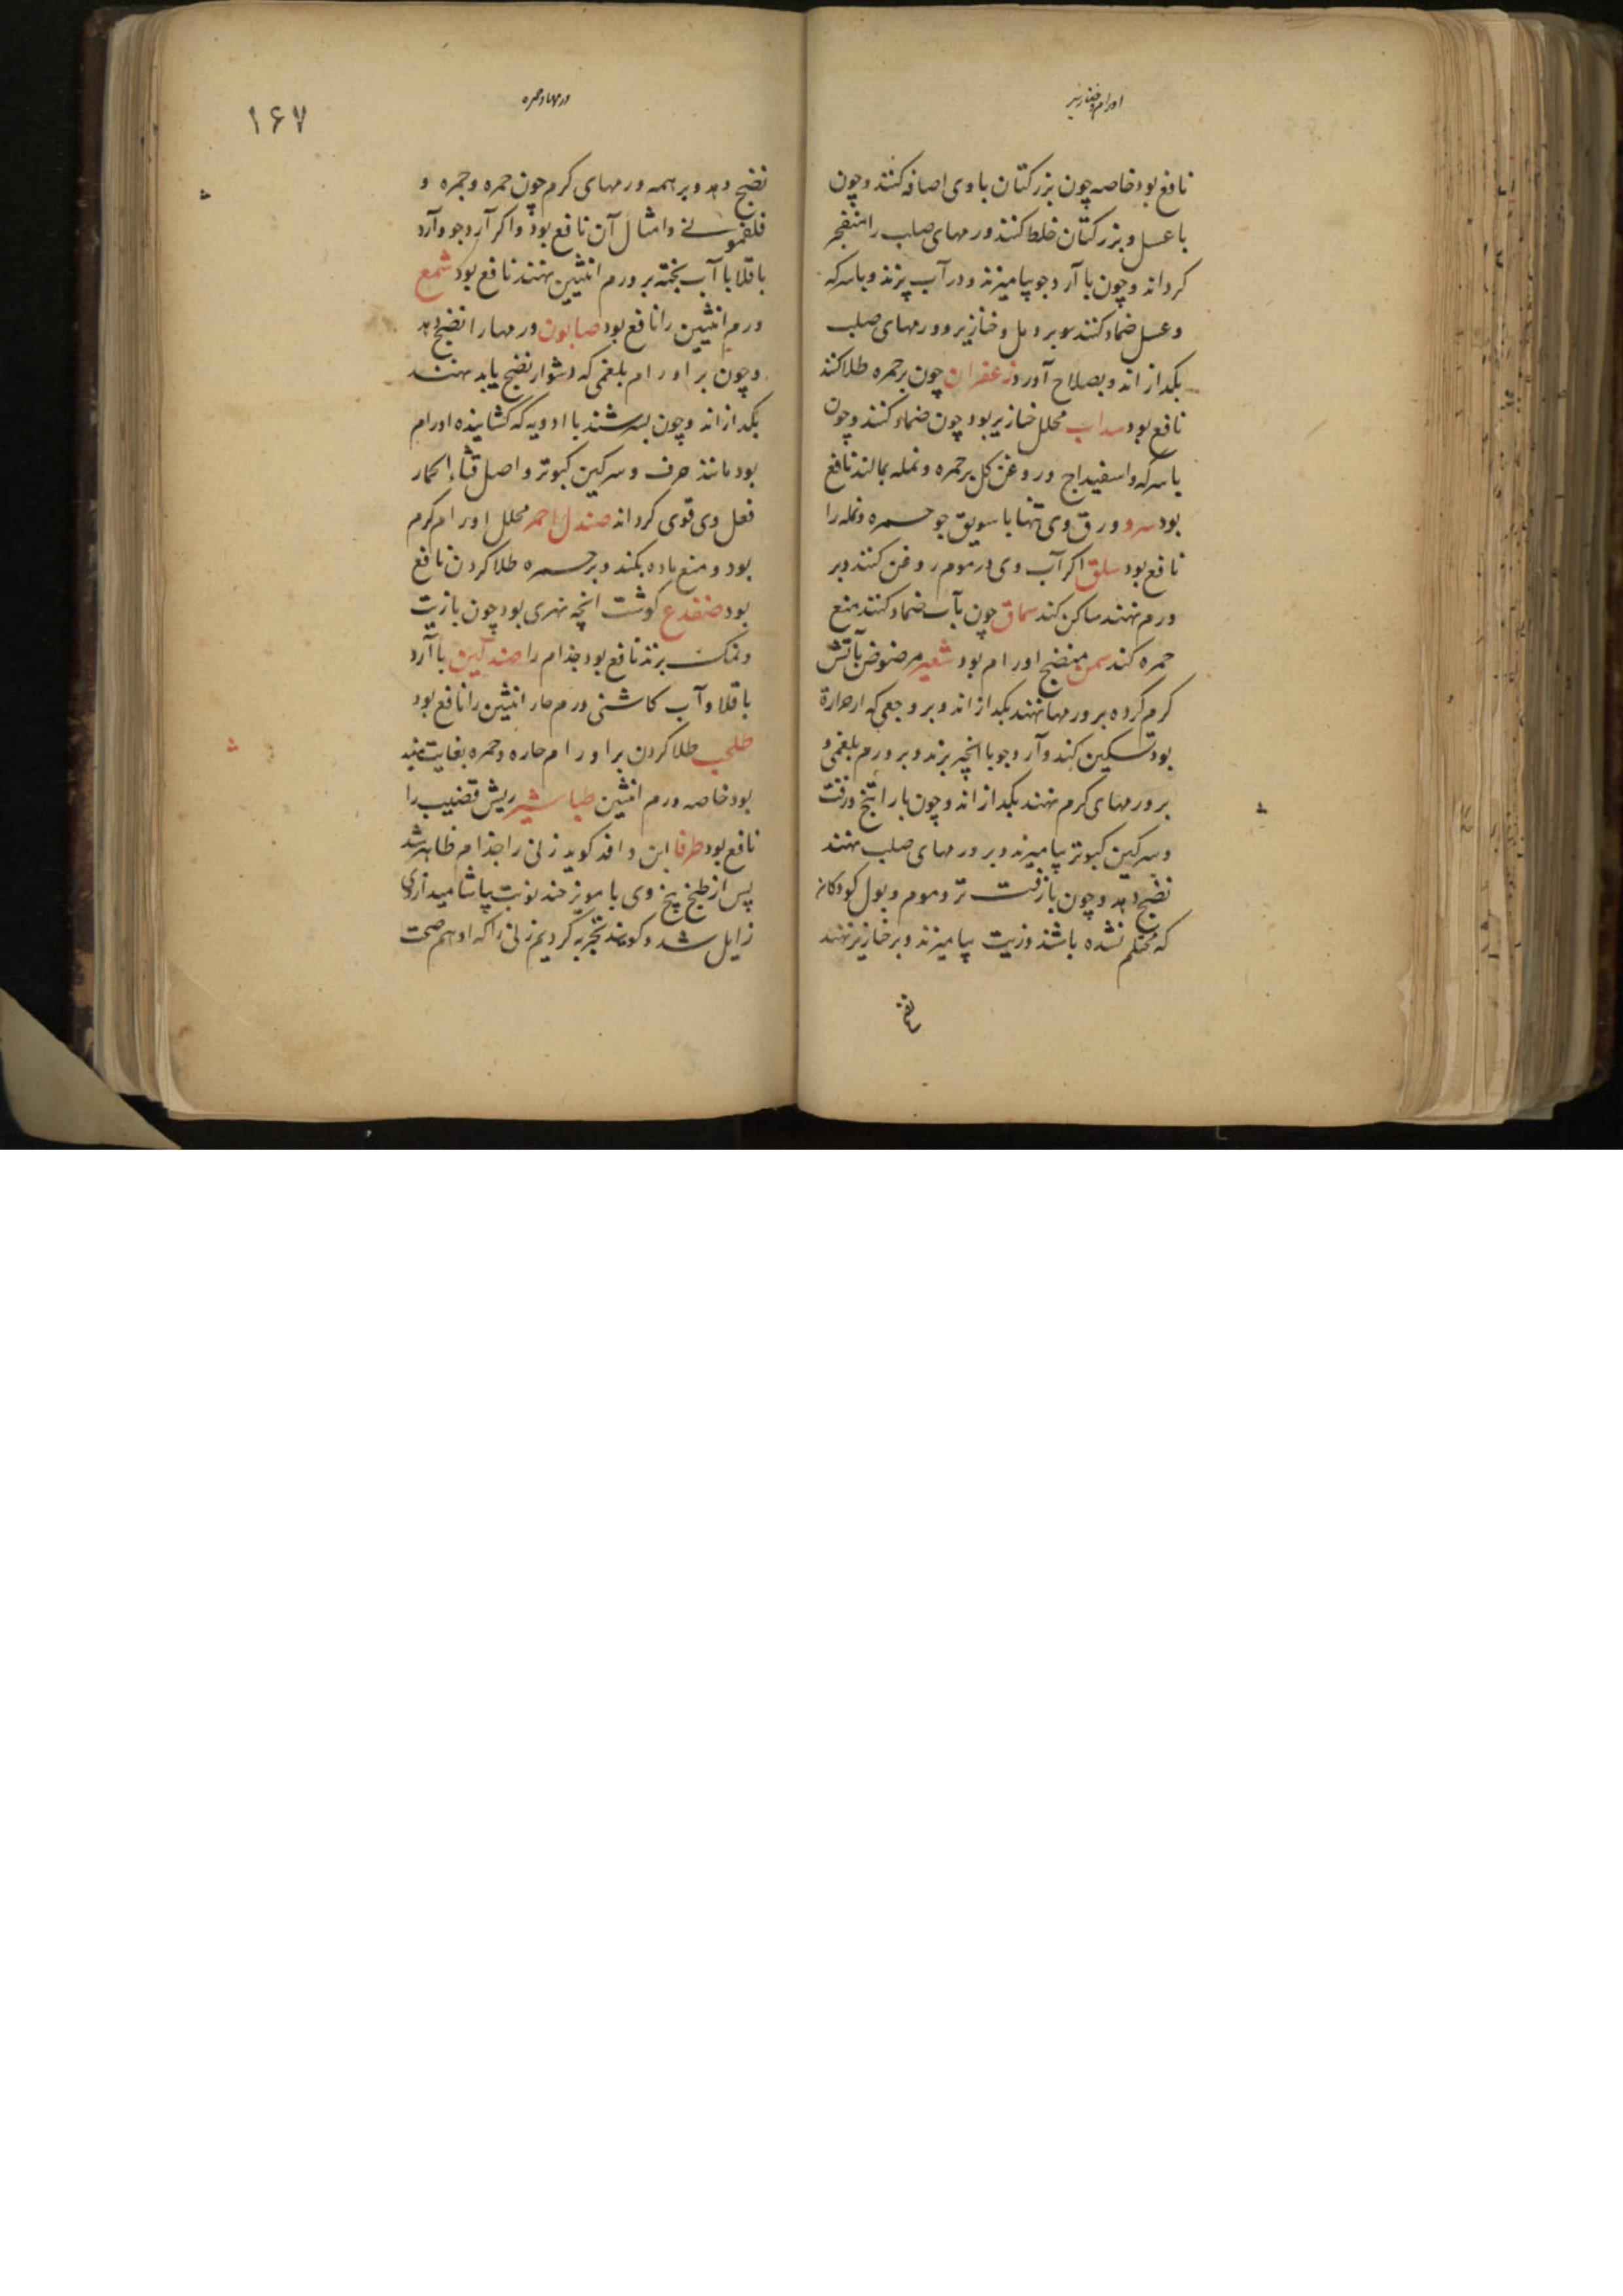 اورام و خنازیر
نافع بود خاصه چون بزر کتان با وی اضافه کنند و چون
با عسل و بزر کتان خلط کنند ورمهای صلب را منفجر
کرداند و چون با آرد جو بیامیزند و در آب پزند و با سرکه
و عسل ضماد کنند و بر دمل و خنازیر و ورمهای صلب
بکدازاند و بصلاح آورد زعفران چون بر حمره طلا کنند
نافع بود سداب محلل خنازیر بود چون ضماد کنند و چون
با سرکه و اسفیداج و روغن کل بر حمره و نمله بمالند نافع
بود سرو ورق وی تنها با سویق جو حمره و نمله را
نافع بود سلق اکر آب وی در موم روغن کنند و بر
ورم نهند ساکن کند سماق چون بآب ضماد کنند منع
حمره کند سمن منضج اورام بود شعیر مرضوض بآتش
کرم کرده بر ورمها نهند بکدازاند و بر وجعی که از حرارة
بود تسکین کند و آرد جو با انجیر پزند و بر ورم بلغمی و
بر ورمهای کرم نهند بکدازاند و چون با راتینج و زفت
و سرکین کبوتر بیامیزند و بر ورمهای صلب نهند
نضج دهد و چون با زفت تر و موم و بول کودکان
که محتلم نشده باشند و زیت بیامیزند و بر خنازیر نهند
نضج
ورمها و حمره
۱۶۷
نضج دهد و بر همه ورمهای کرم چون حمره و جمره و
فلغمونی و امثال آن نافع بود و اکر آرد جو و آرد
باقلا با آب پخته بر ورم انثیین نهند نافع بود شمع
ورم انثیین را نافع بود صابون ورمها را نضج دهد
و چون بر اورام بلغمی که دشوار نضج یابد نهند
بکدازاند و چون بسرشند با ادویه که کشاینده اورام
بود مانند حرف و سرکین کبوتر و اصل قثاء الحمار
فعل وی قوی کرداند صندل احمر محلل اورام کرم
بود و منع ماده بکند و بر حمره طلا کردن نافع
بود ضفدع کوشت انچه نهری بود چون با زیت
و نمک بزند نافع بود جذام را صندلین با آرد
باقلا و آب کاشنی ورم حار انثیین را نافع بود
طحلب طلا کردن بر اورام حاره و حمره بغایت مفید
بود خاصه ورم انثیین طباشیر ریش قضیب را
نافع بود طرفا ابن وافد کوید زنی را جذام ظاهر شد
پس از طبخ بیخ وی با مویز چند نوبت بیاشامید ازوی
زایل شد و کویند تجربه کردیم زنی را که او هم صحت